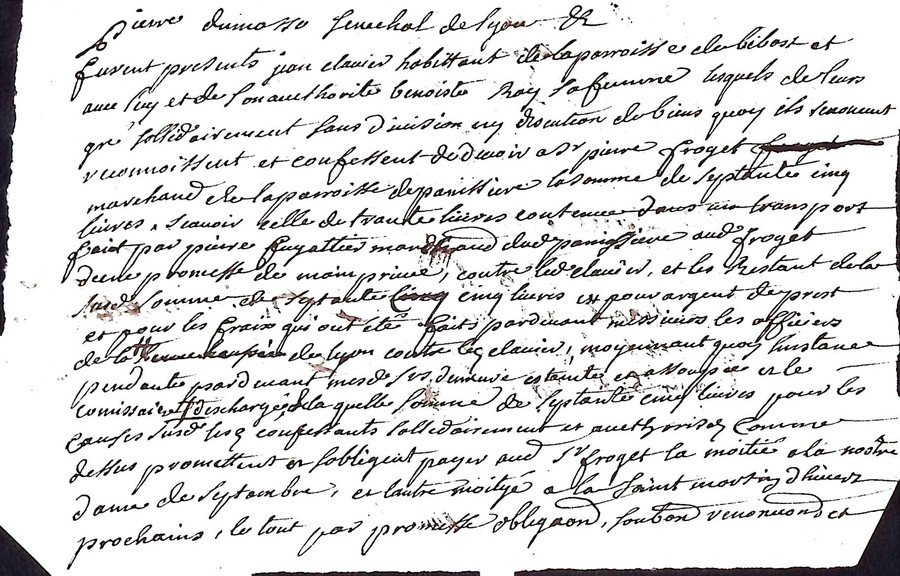 pierre dumasso senechal de lyon &
furent presents jean clavier habittant de la parroisse de bibost et
avec luy et de son authorité benoiste Ray sa femme lesquels de leurs
gré sollidairement sans division ny discution de biens quoy ils renoncent
reconnoissent et confessent debvoir a Sr pierre froget
marchand de la parroisse de panissiere la somme de septante cinq
livres, scavoir celle de trante livres contenue dans un transport
fait par pierre fugattier marchand dud panissiere aud froget
dune promesse de main privée, contre led clavier, et les Restant de la
susd somme de septante cinq livres est pour argent de prest
et pour les fraix qui ont été faits pardevant messieurs les officiers
de la de lyon contre led clavier, moyennant quoy linstance
pendante pardevant mesd srs demeure estainte et assoupie et le
comissaire deschargé de laquelle somme de septante cinq livres pour les
causes susd lesd confessants sollidairement et authorisés comme
dessus promettent et sobligent payer aud Sr froget la moitié a la nostre
dame de septambre, et lautre moityé a la saint martin dhivert
prochains, le tout par promesse obligaon, soubon renoncond et